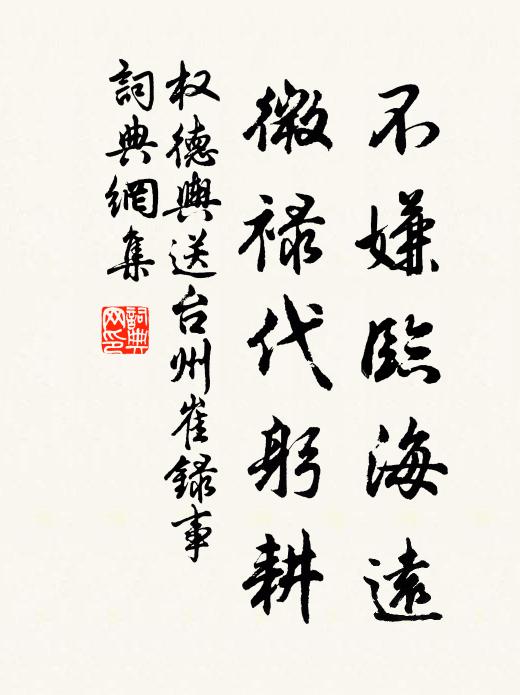 不嫌臨海遠
微禄代躬耕
权德輿送台州崔録事
詞典網集
詞典
网印